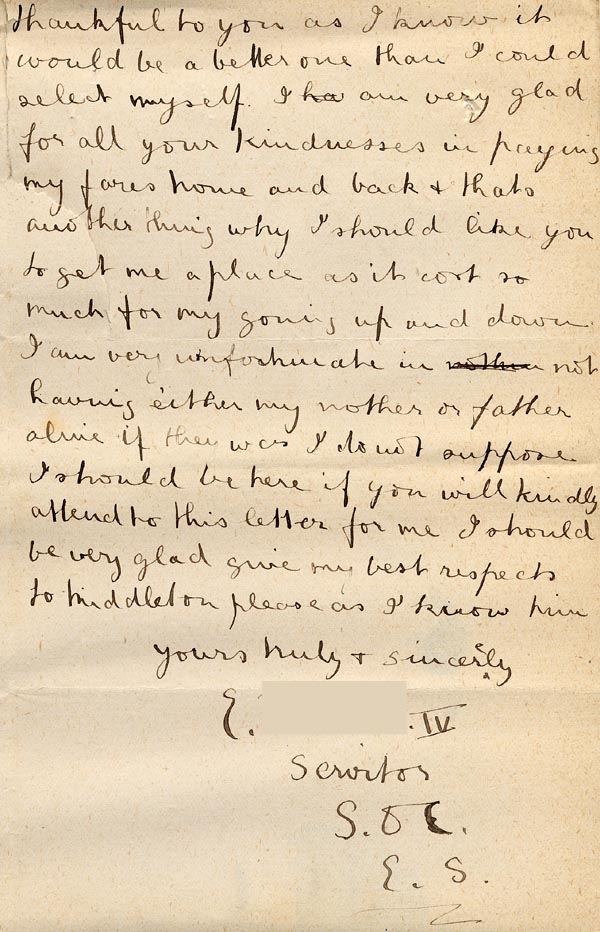 thankful to you as I know it
would be a better one than I could
select myself. I ha am very glad
for all your kindnesses in paying
my fares home and back & thats
another thing why I should like you
to get me a place as it cost so
much for my going up and down
I am very unfortunate in nothin not
having either my mother or father
alive if they was I do not suppose
I should be here if you will kindly
attend to this letter for me I should
be very glad give my best respects
to Middleton please as I know him
yours truly & sincerly
E. . IV
Servitor
S. O C.
E. S.